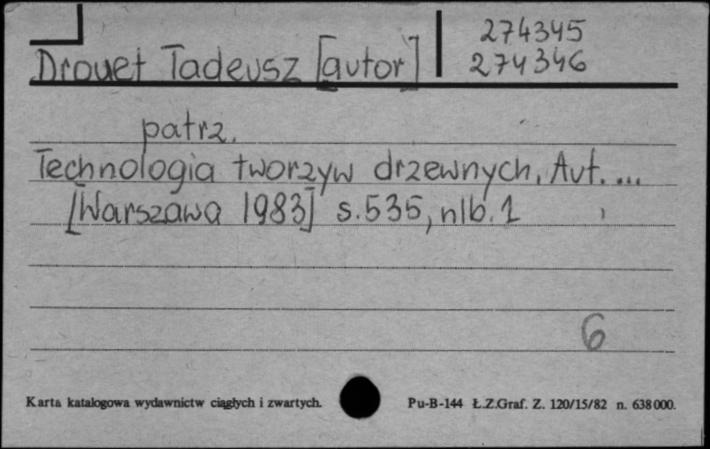 274345
Drouet Tadeusz [autor] 274346
patrz.
Technologia tworzyw drzewnych. Aut. ...
[Warszawa 1983] s. 535, nlb. 1
6
Karta katalogowa wydawnictw ciągłych i zwartych. Pu-B-144 Ł.Z.Graf. Z. 120/15/82 n. 638000.